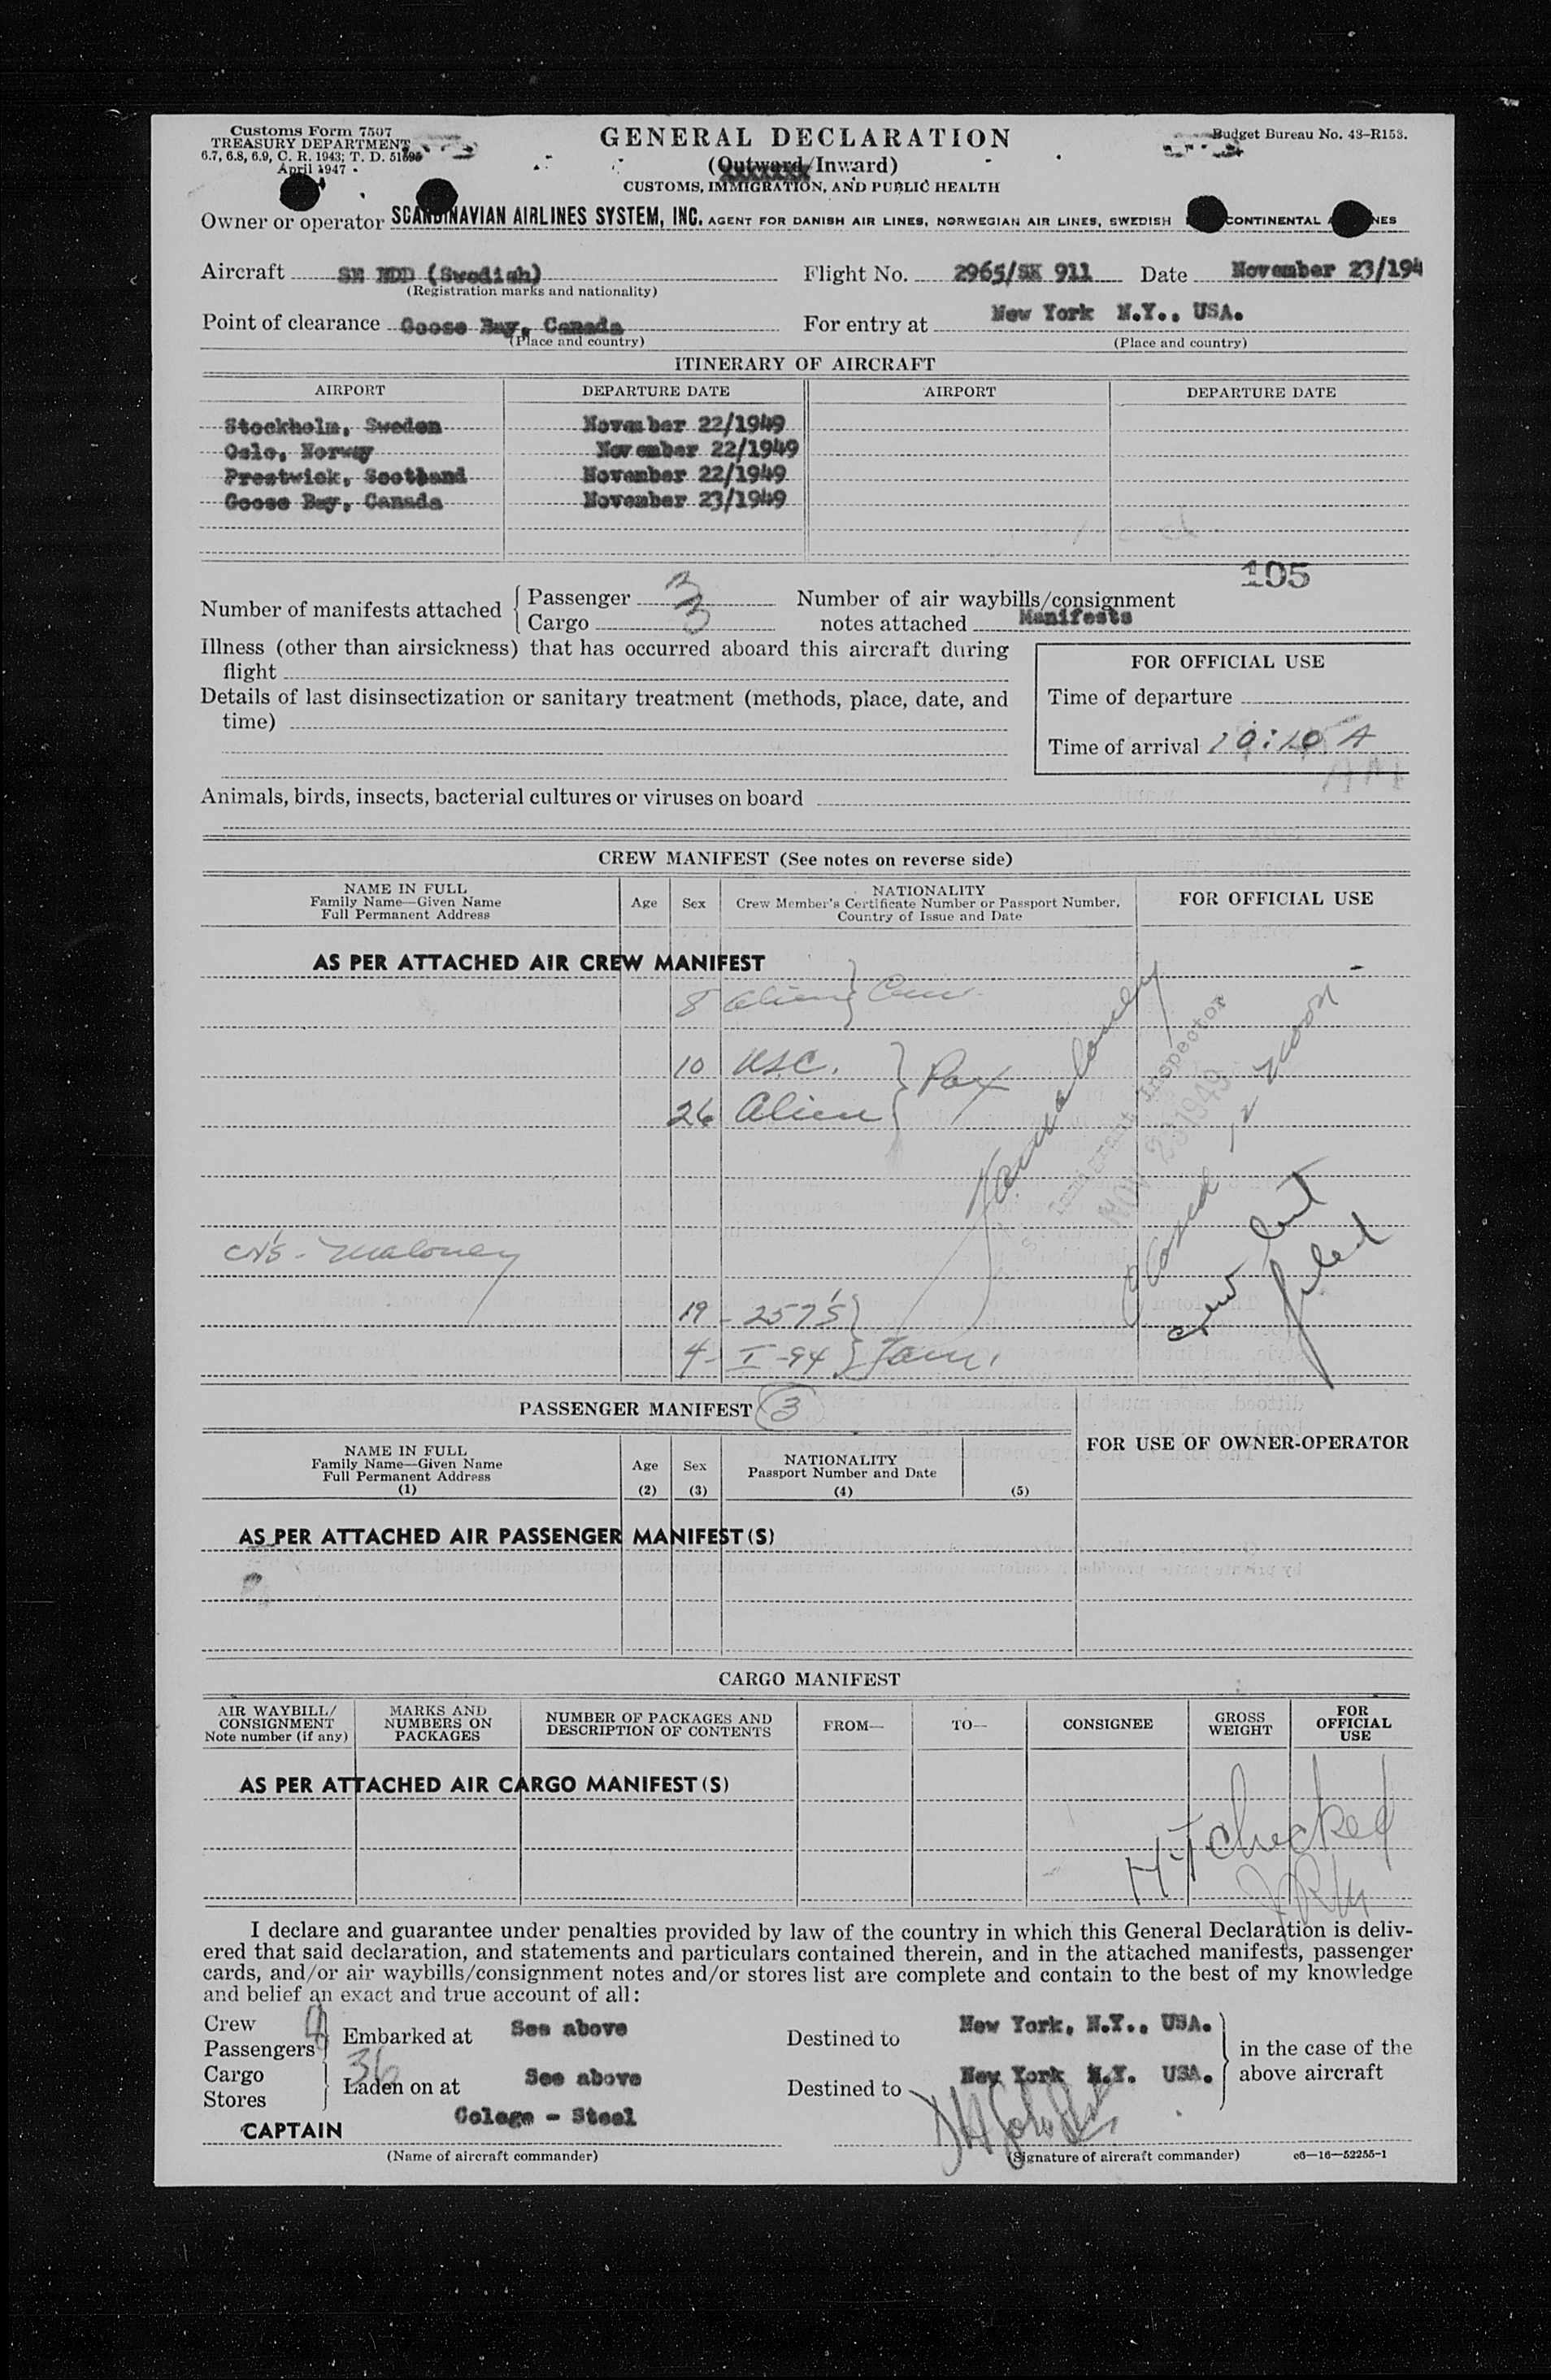 Customs Form 7507
TREASURY DEPARTMENT
6.7, 6.8, 6.9, C. R. 1943; T. D. 51695
April 1947
GENERAL DECLARATION
(Outward/Inward)
CUSTOMS, IMMIGRATION, AND PUBLIC HEALTH
Budget Bureau No. 48-R153.
Owner or operator SCANDINAVIAN AIRLINES SYSTEM, INC. AGENT FOR DANISH AIR LINES, NORWEGIAN AIR LINES, SWEDISH CONTINENTAL
Aircraft SE BDD (Swedish) Flight No. 2965/SK 911 Date November 23/194
(Registration marks and nationality)
Point of clearance Goose Bay, Canada For entry at New York N.Y., USA.
(Place and country) (Place and country)
ITINERARY OF AIRCRAFT
AIRPORT DEPARTURE DATE AIRPORT DEPARTURE DATE
Stockholm, Sweden November 22/1949
Oslo, Norway November 22/1949
Prestwick, Scotland November 22/1949
Goose Bay, Canada November 23/1949
105
Number of manifests attached Passenger 3 Number of air waybills/consignment
Cargo 3 notes attached Manifests
Illness (other than airsickness) that has occurred aboard this aircraft during
flight
Details of last disinsectization or sanitary treatment (methods, place, date, and
time)
FOR OFFICIAL USE
Time of departure
Time of arrival 10:10 A
AM
Animals, birds, insects, bacterial cultures or viruses on board
CREW MANIFEST (See notes on reverse side)
NAME IN FULL
Family Name—Given Name
Full Permanent Address
Age Sex
NATIONALITY
Crew Member's Certificate Number or Passport Number,
Country of Issue and Date
FOR OFFICIAL USE
AS PER ATTACHED AIR CREW MANIFEST
8 Aliens } Crew
10 USC. } Pax
26 Alien
Immigrant Inspector
NOV 23 1949
Closed 12 noon
Crew list
filed
Maloney
19 - 257's
4 - I-94
PASSENGER MANIFEST 3
NAME IN FULL
Family Name—Given Name
Full Permanent Address
(1)
Age Sex
(2) (3)
NATIONALITY
Passport Number and Date
(4) (5)
FOR USE OF OWNER-OPERATOR
AS PER ATTACHED AIR PASSENGER MANIFEST(S)
CARGO MANIFEST
AIR WAYBILL/
CONSIGNMENT
Note number (if any)
MARKS AND
NUMBERS ON
PACKAGES
NUMBER OF PACKAGES AND
DESCRIPTION OF CONTENTS
FROM— TO— CONSIGNEE
GROSS
WEIGHT
FOR
OFFICIAL
USE
AS PER ATTACHED AIR CARGO MANIFEST(S)
checked
I declare and guarantee under penalties provided by law of the country in which this General Declaration is deliv-
ered that said declaration, and statements and particulars contained therein, and in the attached manifests, passenger
cards, and/or air waybills/consignment notes and/or stores list are complete and contain to the best of my knowledge
and belief an exact and true account of all:
Crew
Passengers Embarked at See above Destined to New York, N.Y., USA.
36
in the case of the
above aircraft
Cargo
Stores Laden on at See above Destined to New York N.Y. USA.
CAPTAIN Colage - Steel
(Name of aircraft commander) (Signature of aircraft commander) c6—16—52255-1